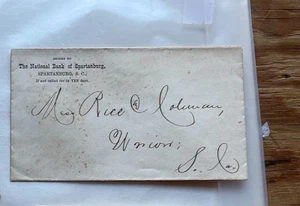 RETURN TO
The National Bank of Spartanburg,
SPARTANBURG, S. C.,
If not called for in TEN days.
Rice & Coleman,
Union,
S. Ca.